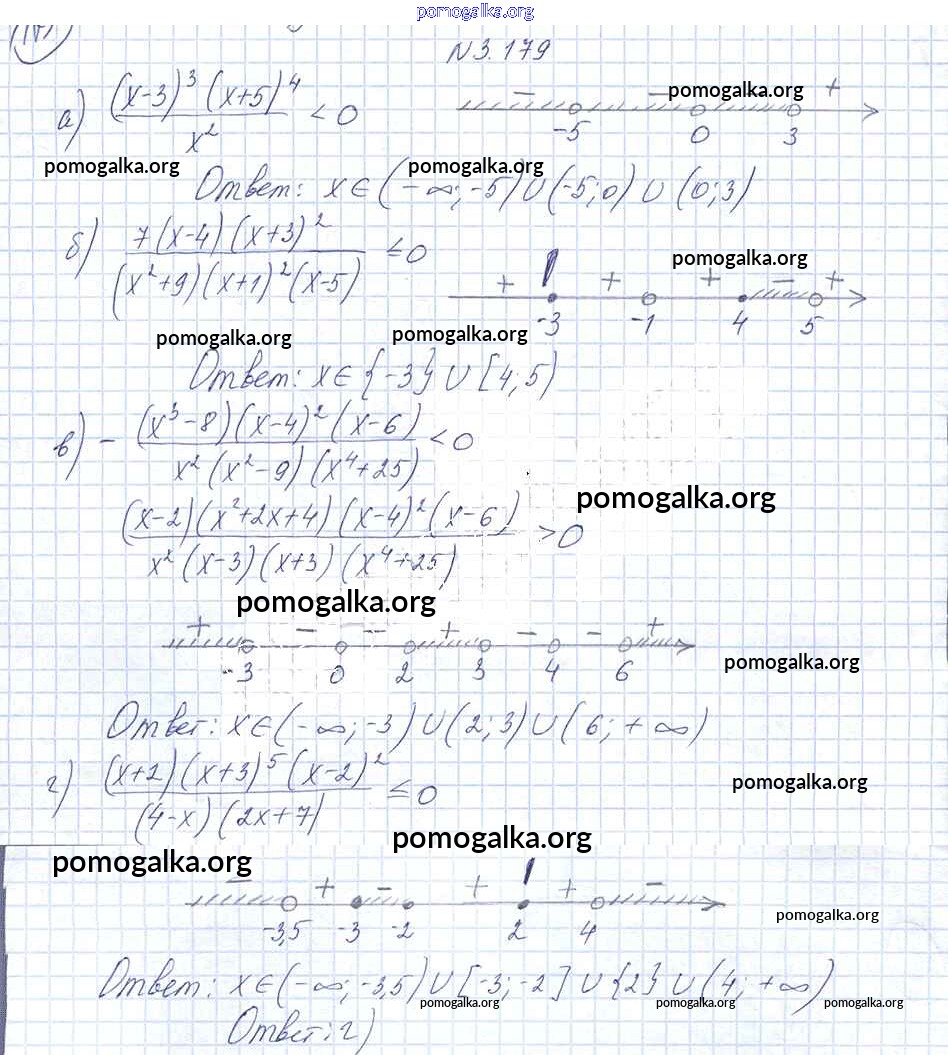 pomogalka.org
N 3.179
а) (x-3)³ (x+5)⁴ / x² < 0
− − − +
-5 0 3
pomogalka.org
pomogalka.org pomogalka.org
Ответ: x∈(-∞;-5)∪(-5;0)∪(0;3)
б) 7(x-4)(x+3)² / (x²+9)(x+1)²(x-5) ≤0
pomogalka.org
+ ! + + − +
-3 -1 4 5
pomogalka.org pomogalka.org
Ответ: x∈{-3}∪[4;5)
в) - (x³-8)(x-4)²(x-6) / x²(x²-9)(x⁴+25) <0
pomogalka.org
(x-2)(x²+2x+4)(x-4)²(x-6) / x²(x-3)(x+3)(x⁴+25) >0
pomogalka.org
+ − − + − − +
-3 0 2 3 4 6
pomogalka.org
Ответ: x∈(-∞;-3)∪(2;3)∪(6;+∞)
г) (x+2)(x+3)⁵(x-2)² / (4-x)(2x+7) ≤0
pomogalka.org
pomogalka.org
pomogalka.org
− + − + ! + −
-3,5 -3 -2 2 4
pomogalka.org
Ответ: x∈(-∞;-3,5)∪[-3;-2]∪{2}∪(4;+∞)
pomogalka.org pomogalka.org pomogalka.org
Ответ: г)